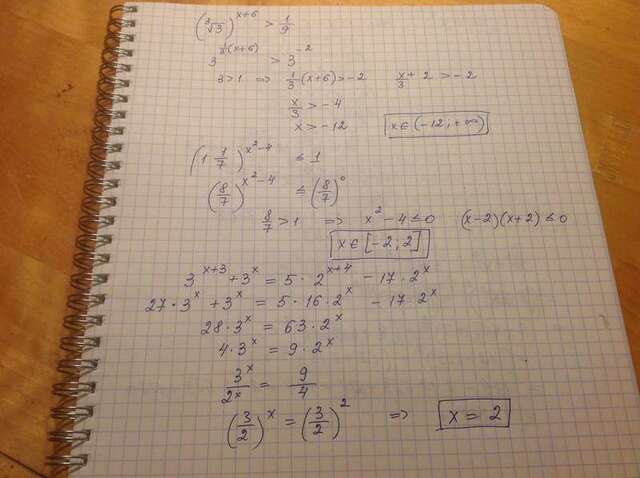 (∛3)^(x+6) > 1/9
3^(1/3(x+6)) > 3^(-2)
3>1 ⇒ 1/3(x+6)>-2 x/3 + 2 > -2
x/3 > -4
x > -12 x∈(-12; +∞)
(1 1/7)^(x²-4) ≤ 1
(8/7)^(x²-4) ≤ (8/7)^0
8/7 > 1 ⇒ x² - 4 ≤ 0 (x-2)(x+2) ≤ 0
x∈[-2; 2]
3^(x+3) + 3^x = 5 · 2^(x+4) - 17 · 2^x
27 · 3^x + 3^x = 5 · 16 · 2^x - 17 · 2^x
28 · 3^x = 63 · 2^x
4 · 3^x = 9 · 2^x
3^x/2^x = 9/4
(3/2)^x = (3/2)^2 ⇒ x = 2